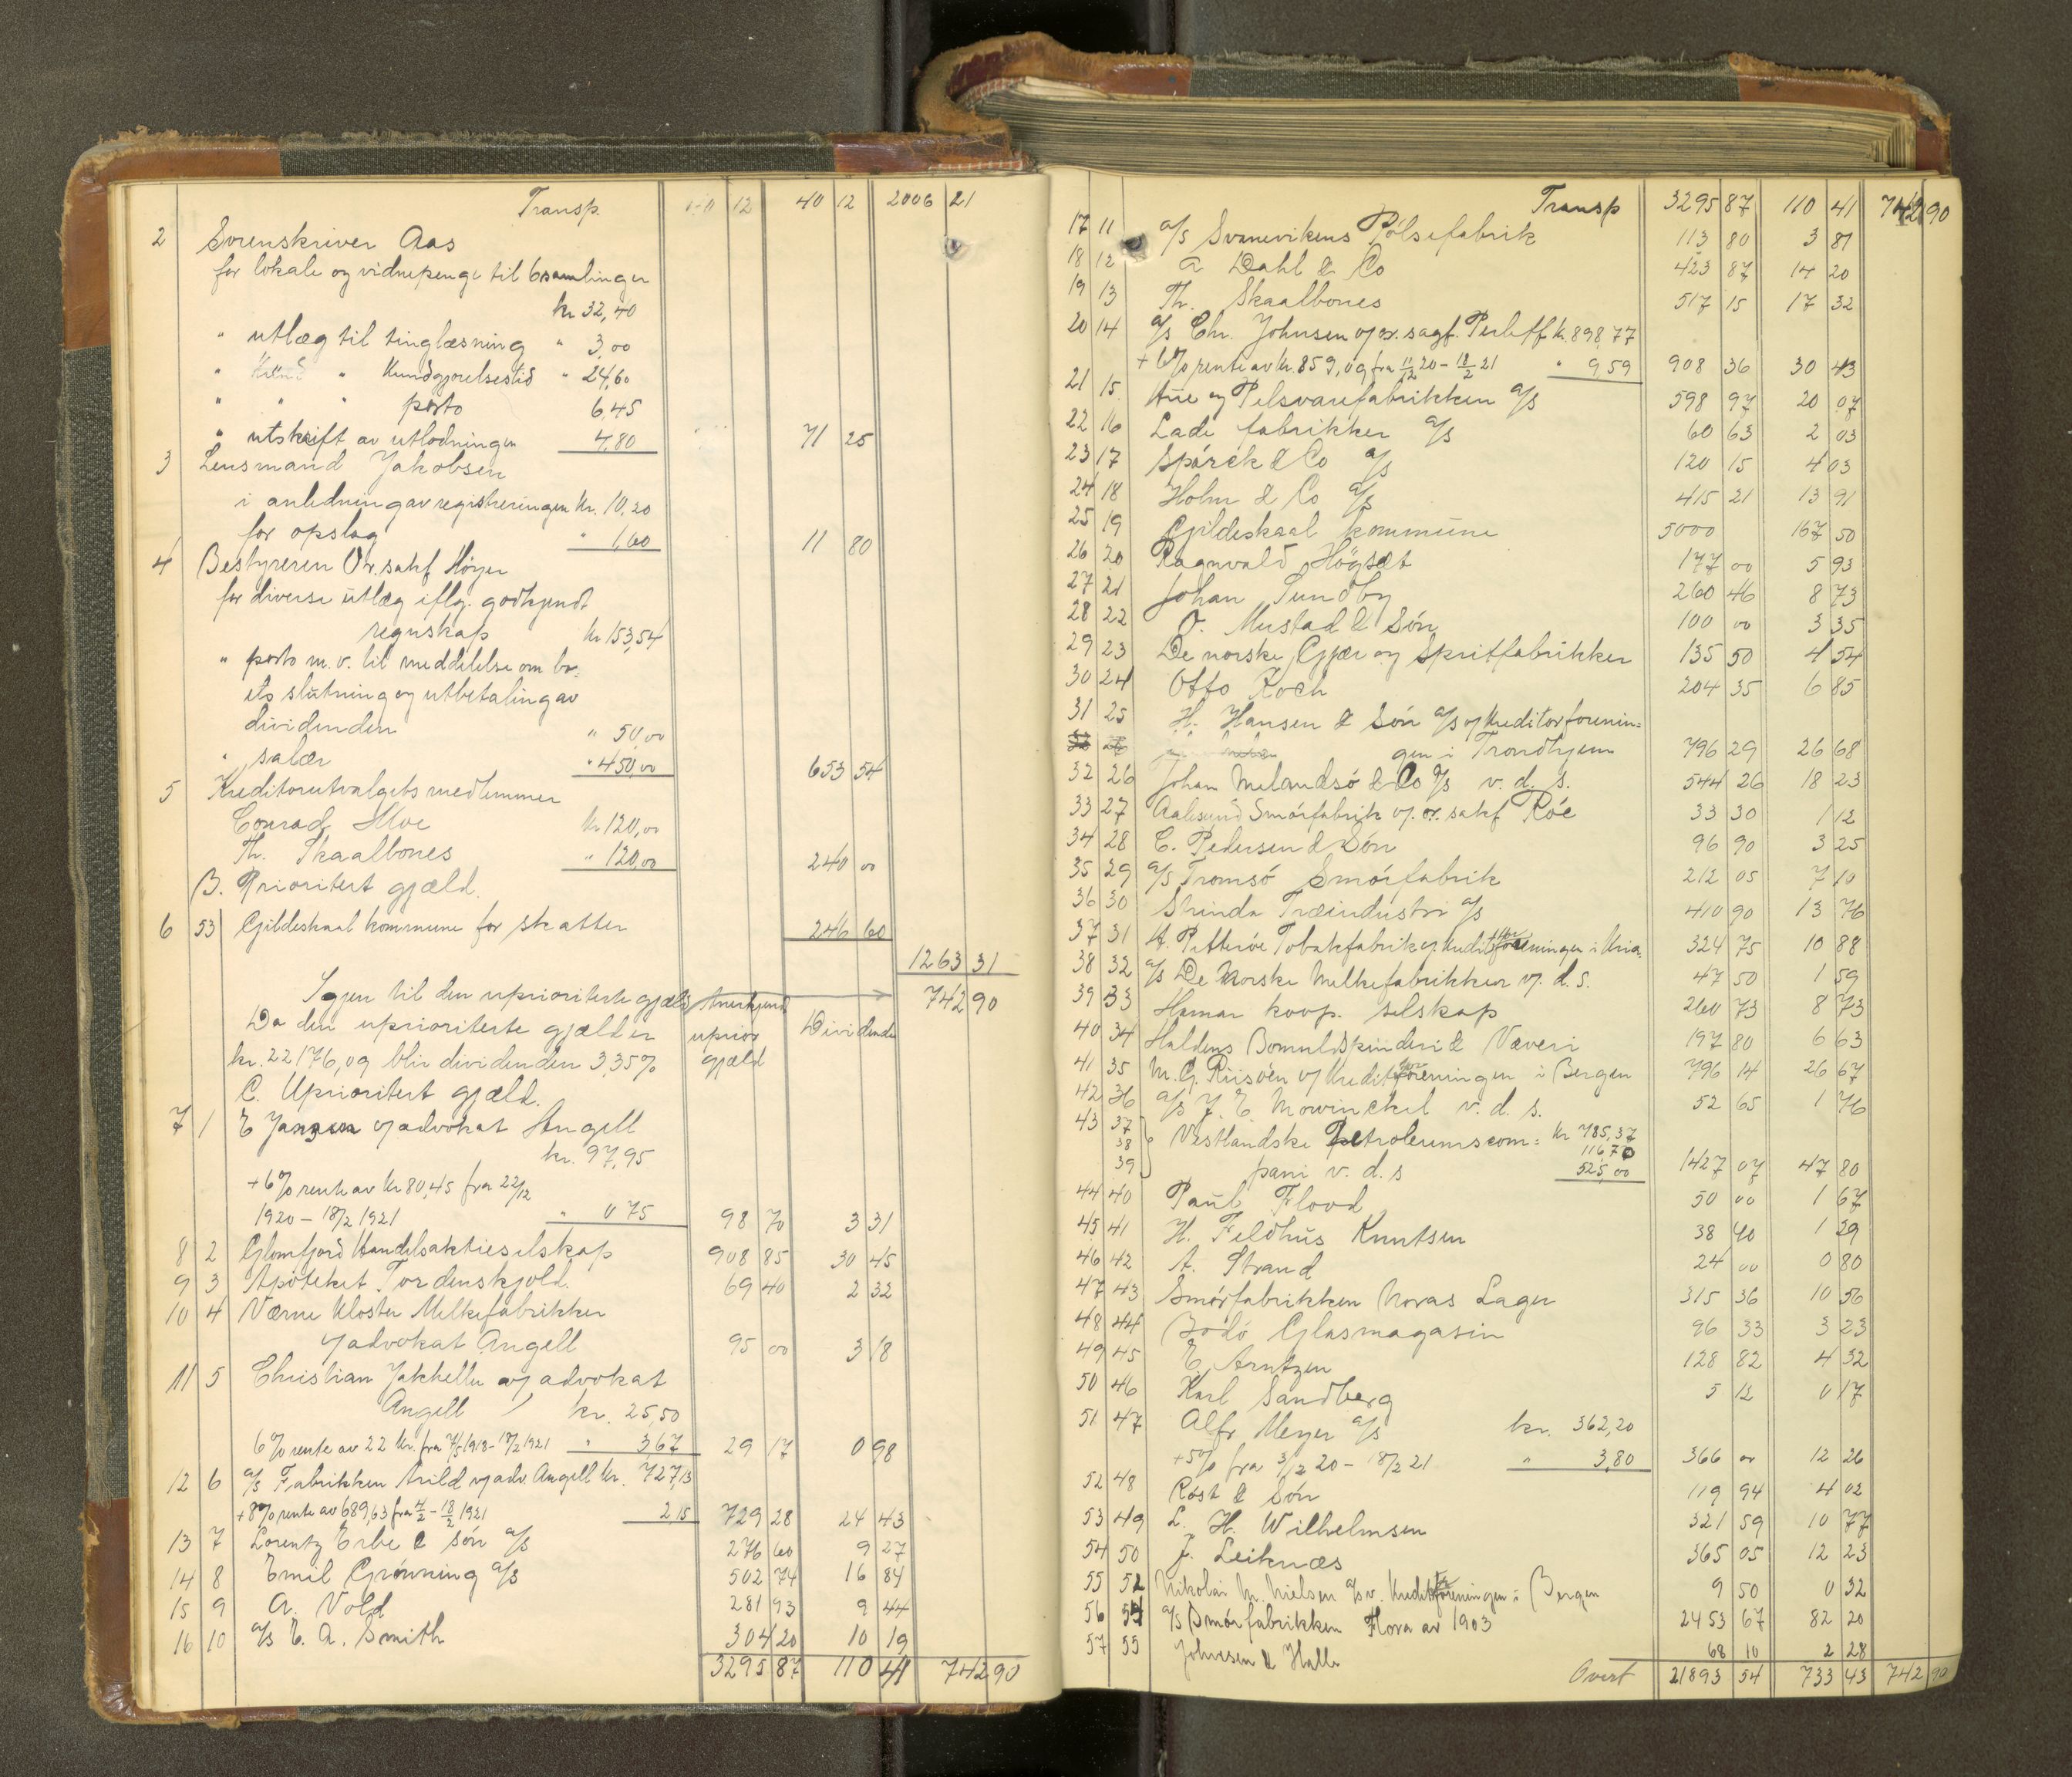 Transp. 40 12 2006 21
2 Sorenskriver Aas
for lokale og vidnepenge til 6 samlinger
kr 32,40
" utlæg til tinglæsning " 3,00
" " Kundgjørelsestid " 24,60
" " " porto 6,45
" utskrift av utlodningen 4,80 71 25
3 Lensmand Jakobsen
i anledning av registreringen Kr. 10,20
for opslag " 1,60 11 80
4 Bestyreren Or. sakf Høyer
for diverse utlæg iflg. godkjendt
regnskap kr 153,54
" porto m.v. til meddelelse om bo-
ets slutning og utbetaling av
dividenden " 50,00
" salær " 450,00 653 54
5 Kreditorutvalgets medlemmer
Conrad Hoe kr 120,00
Th. Skaalbones " 120,00 240 00
B. Prioritert gjæld.
6 53 Gildeskaal kommune for skatter 246 60
1263 31
Igjen til den uprioriterte gjæld Anerkjend 742 90
Da den uprioriterte gjæld er uprior Dividende
kr. 22176,09 blir dividenden 3,35% gjæld
C. Uprioritert gjæld.
7 1 E Jansen v/ advokat Angell
kr. 97,95
+ 6% rente av kr 80,45 fra 22/12
1920 – 18/2 1921 " 0 75 98 70 3 31
8 2 Glomfjord Handelsaktieselskap 908 85 30 45
9 3 Apoteket Tordenskjold 69 40 2 32
10 4 Værne Kloster Melkefabrikker
v/ advokat Angell 95 00 3 18
11 5 Christian Jakhelln v/ advokat
Angell kr. 25,50
6% rente av 22 kr. fra 7/5 1918 – 18/2 1921 " 3,67 29 17 0 98
12 6 a/s Fabrikken Arild v/ adv. Angell kr. 727,13
+ 8% rente av 689,63 fra 4/2 – 18/2 1921 2,15 729 28 24 43
13 7 Lorentz Erbe & søn a/s 276 60 9 27
14 8 Emil Grønning a/s 502 74 16 84
15 9 A. Vold 281 93 9 44
16 10 a/s E. A. Smith 304 20 10 19
3295 87 110 41 742 90
Transp 3295 87 110 41 742 90
17 11 a/s Svanevikens Pølsefabrik 113 80 3 81
18 12 A Dahl & Co 423 87 14 20
19 13 Th. Skaalbones 517 15 17 32
20 14 a/s Chr. Johnsen v/ or. sagf. Perleff kr. 898,77
+ 6% rente av kr. 859,09 fra 11/12 20 – 18/2 21 " 9,59 908 36 30 43
21 15. Hue og Pelsvarefabrikken a/s 598 97 20 07
22 16 Lade fabrikker a/s 60 63 2 03
23 17 Spørck & Co a/s 120 15 4 03
24 18 Holm & Co a/s 415 21 13 91
25 19 Gildeskaal kommune 5000 167 50
26 20 Ragnvald Høgsæt 177 00 5 93
27 21 Johan Sundby 260 46 8 73
28 22 O. Mustad & Søn 100 00 3 35
29 23 De norske Gjær og Spritfabrikker 135 50 4 54
30 24 Otto Koch 204 35 6 85
31 25 H. Hansen & Søn a/s v/ Kreditorforenin-
gen i Trondhjem 796 29 26 68
32 26 Johan Melandsø & Co a/s v. d. s. 544 26 18 23
33 27 Aalesund Smørfabrik v/ or. sakf Røe 33 30 1 12
34 28 C. Pedersen & Søn 96 90 3 25
35 29 a/s Tromsø Smørfabrik 212 05 7 10
36 30 Strinda Træindustri a/s 410 90 13 76
37 31 H. Petterøe Tobakfabrik v/ Kreditorforeningen i Kria. 324 75 10 88
38 32 a/s De Norske Melkefabrikker v/ d. s. 47 50 1 59
39 33 Hamar koop. selskap 260 73 8 73
40 34 Haldens Bomuldspinderi & Væveri 197 80 6 63
41 35 M. G. Riisøen v/ Kreditorforeningen i Bergen 796 14 26 67
42 36 a/s J. E. Mowinckel v. d. s. 52 65 1 76
43 37 Vestlandske Petroleumscom= kr 785,37
38 116,70
39 pani v. d. s 525,00 1427 07 47 80
44 40 Paul Flood 50 00 1 67
45 41 H. Feldhus Knutsen 38 40 1 29
46 42 A. Strand 24 00 0 80
47 43 Smørfabrikken Noras Lager 315 36 10 56
48 44 Bodø Glasmagasin 96 33 3 23
49 45 E. Arntzen 128 82 4 32
50 46 Karl Sandberg 5 12 0 17
51 47 Alfr Meyer a/s kr. 362,20
+ 5% fra 3/12 20 – 18/2 21 " 3,80 366 00 12 26
52 48 Røst & Søn 119 94 4 02
53 49 L. H. Wilhelmsen 321 59 10 77
54 50 J. Leiknæs 365 05 12 23
55 52 Nikolai M. Nielsen a/s v. Kreditorforeningen i Bergen 9 50 0 32
56 54 a/s Smørfabrikken Flora av 1903 2453 67 82 20
57 55 Johnsen & Halle 68 10 2 28
Overf 21893 54 733 43 742 90